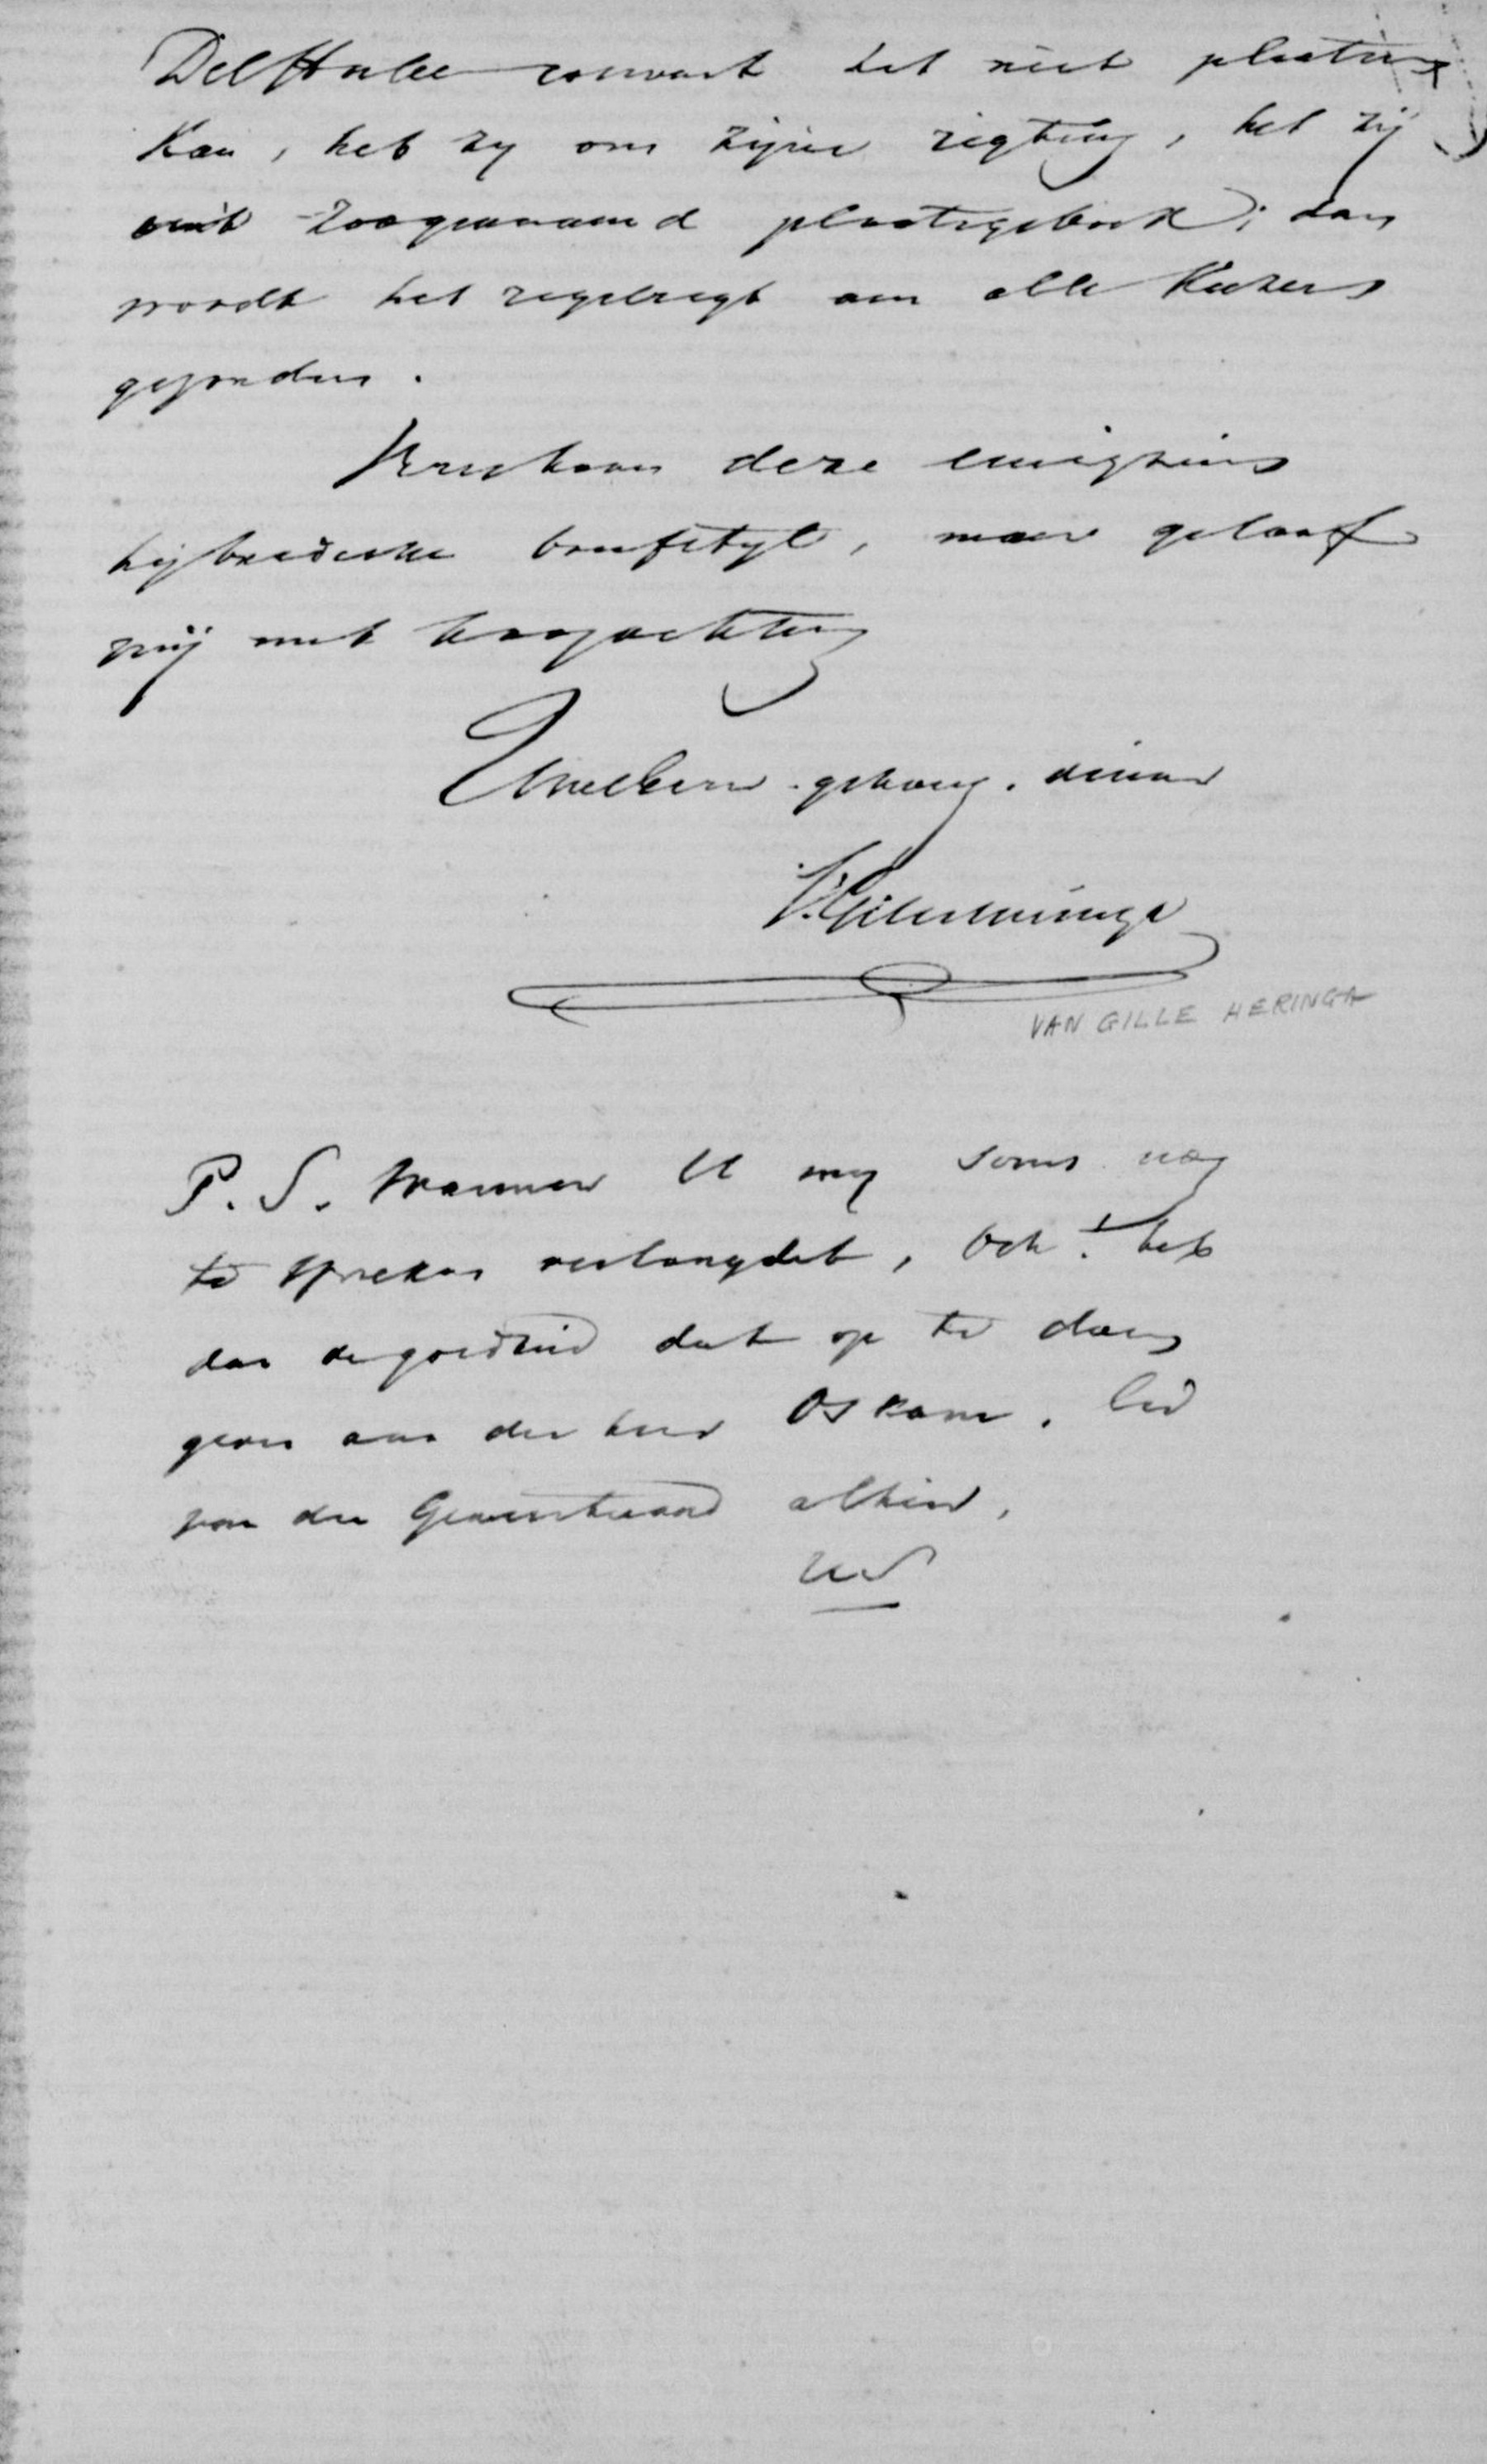 Delftsche courant het niet plaatsen
kan, het zy om zijne rigting, het zij
uit zoogenaamd plaatsgebrek; dan
wordt het regelregt aan alle kiezers
gezonden.
Verschoon deze eenigzins
hybridische briefstyl, maar geloof
mij met hoogachting
UwelEern. gehoorz. dienaar
V. Gilleheringa
VAN GILLE HERINGA
P.S. Wanneer U my soms nog
te spreken verlangdet, och! heb
dan de goedheid dat op te
geven aan den heer Oskam, lid
van den Gemeenteraad alhier.